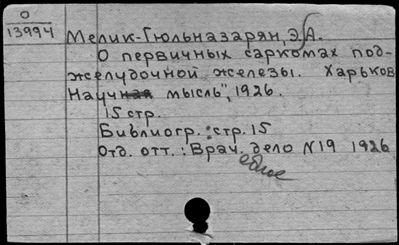 О
13994
Мелик-Гюльназарян, Э.А.
О первичных саркомах под-
желудочной железы. Харьков
Научная мысль", 1926.
15 стр.
Библиогр.: стр. 15
Отд. отт.: Врач. дело N19 1926
ебное